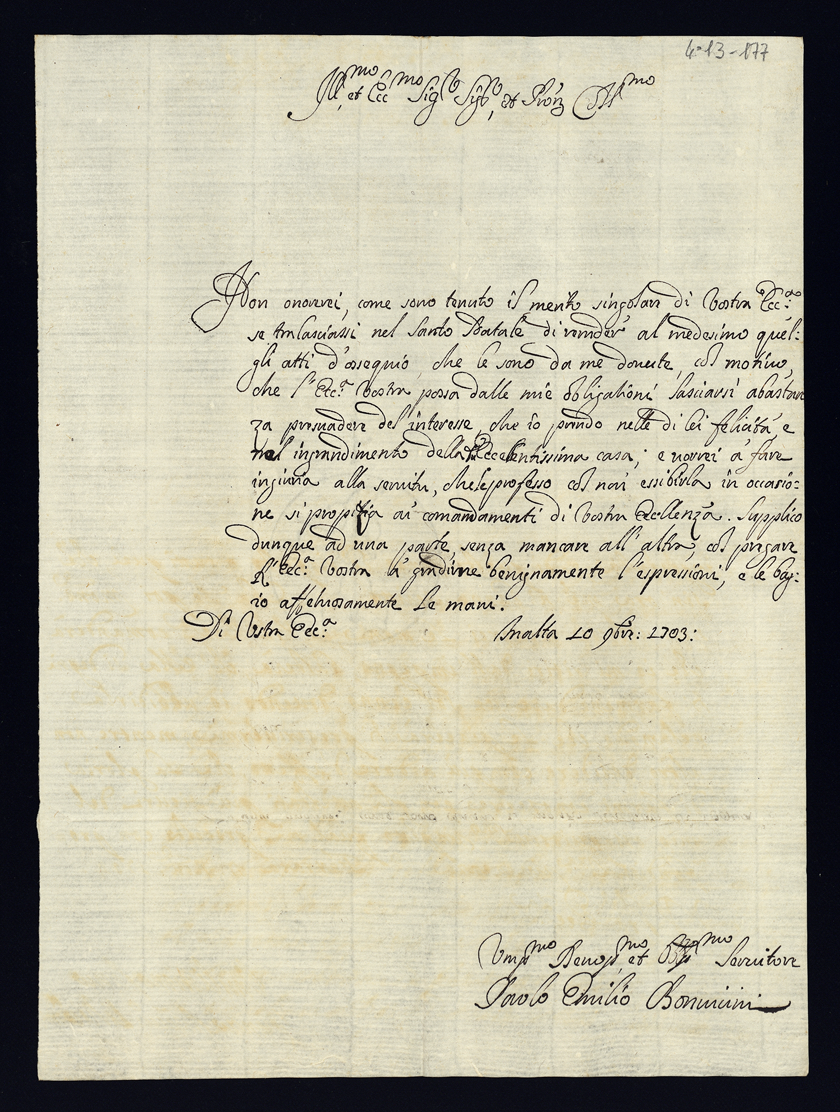 4-13-177
Ill.mo et Ecc.mo Sig.re Sig.re, et Pron Col.mo
Non onorerei, come sono tenuto il merito singolar di Vostra Ecc.a
se tralasciassi nel Santo Natale di render al medesimo quel:
gli atti d'ossequio, che le sono da me dovute, col motivo,
che l'Ecc.a Vostra possa dalle mie obligationi lasciarsi abastan
za persuadere del interesse, che io prendo nelle di lei felicità e
nel ingrandimento della Eccelentissima casa; e verrei à fare
ingiuria alla servitù, che le professo col non essibirla in occasio:
ne si propitia ai comandamenti di Vostra Eccellenza. Supplico
dunque ad una parte, senza mancare all'altra, col pregare
l'Ecc.a Vostra à gradirne benignamente l'espressioni, e le bag:
io affettuosamente le mani.
Di Vostra Ecc.a Malta 10 9bre: 1703:
Um.mo Devo.mo et Obg.mo Servitore
Paolo Emilio Bonincini